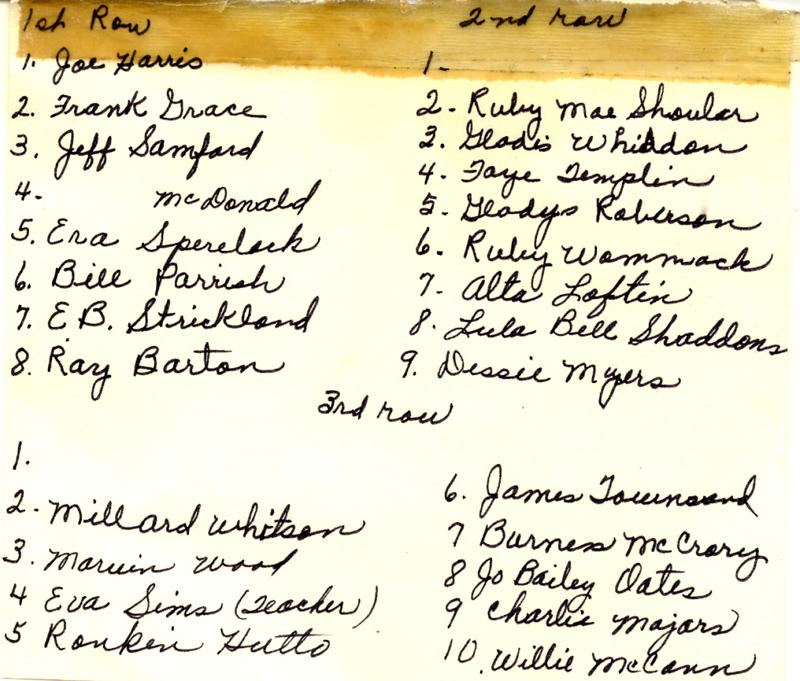 1st Row
1. Joe Harris
2. Frank Grace
3. Jeff Samford
4. McDonald
5. Era Sperelock
6. Bill Parrish
7. E.B. Strickland
8. Ray Barton
2nd row
1.
2. Ruby Mae Shoular
3. Gladis Whiddon
4. Faye Templin
5. Gladys Roberson
6. Ruby Wommack
7. Alta Loftin
8. Lula Bell Shaddons
9. Dessie Myers
3rd row
1.
2. Millard Whitson
3. Marvin Wood
4 Eva Sims (Teacher)
5 Rankin Hutto
6. James Townsend
7 Burness McCrory
8 Jo Bailey Oates
9 Charlie Majors
10. Willie McCann